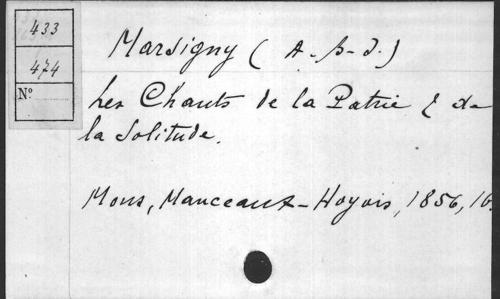 433
474
N°
Marsigny (A-B-J.)
Les Chants de la Patrie & de
la Solitude.
Mons, Manceaux-Hoyois, 1856, 16.